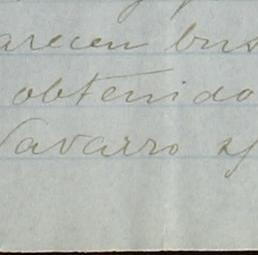 arecen bus
obtenido
Navarro y